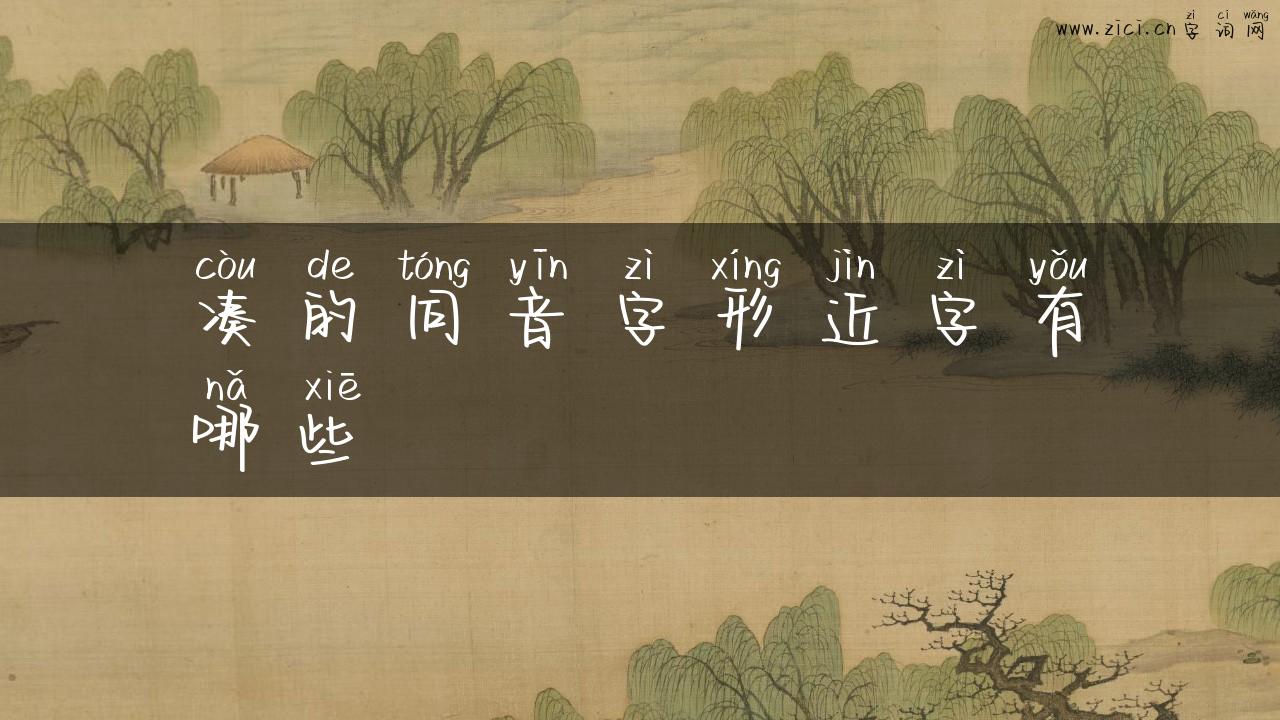 zì cí wǎng
www.zici.cn 字词网
còu de tóng yīn zì xíng jìn zì yǒu
凑的同音字形近字有
nǎ xiē
哪些